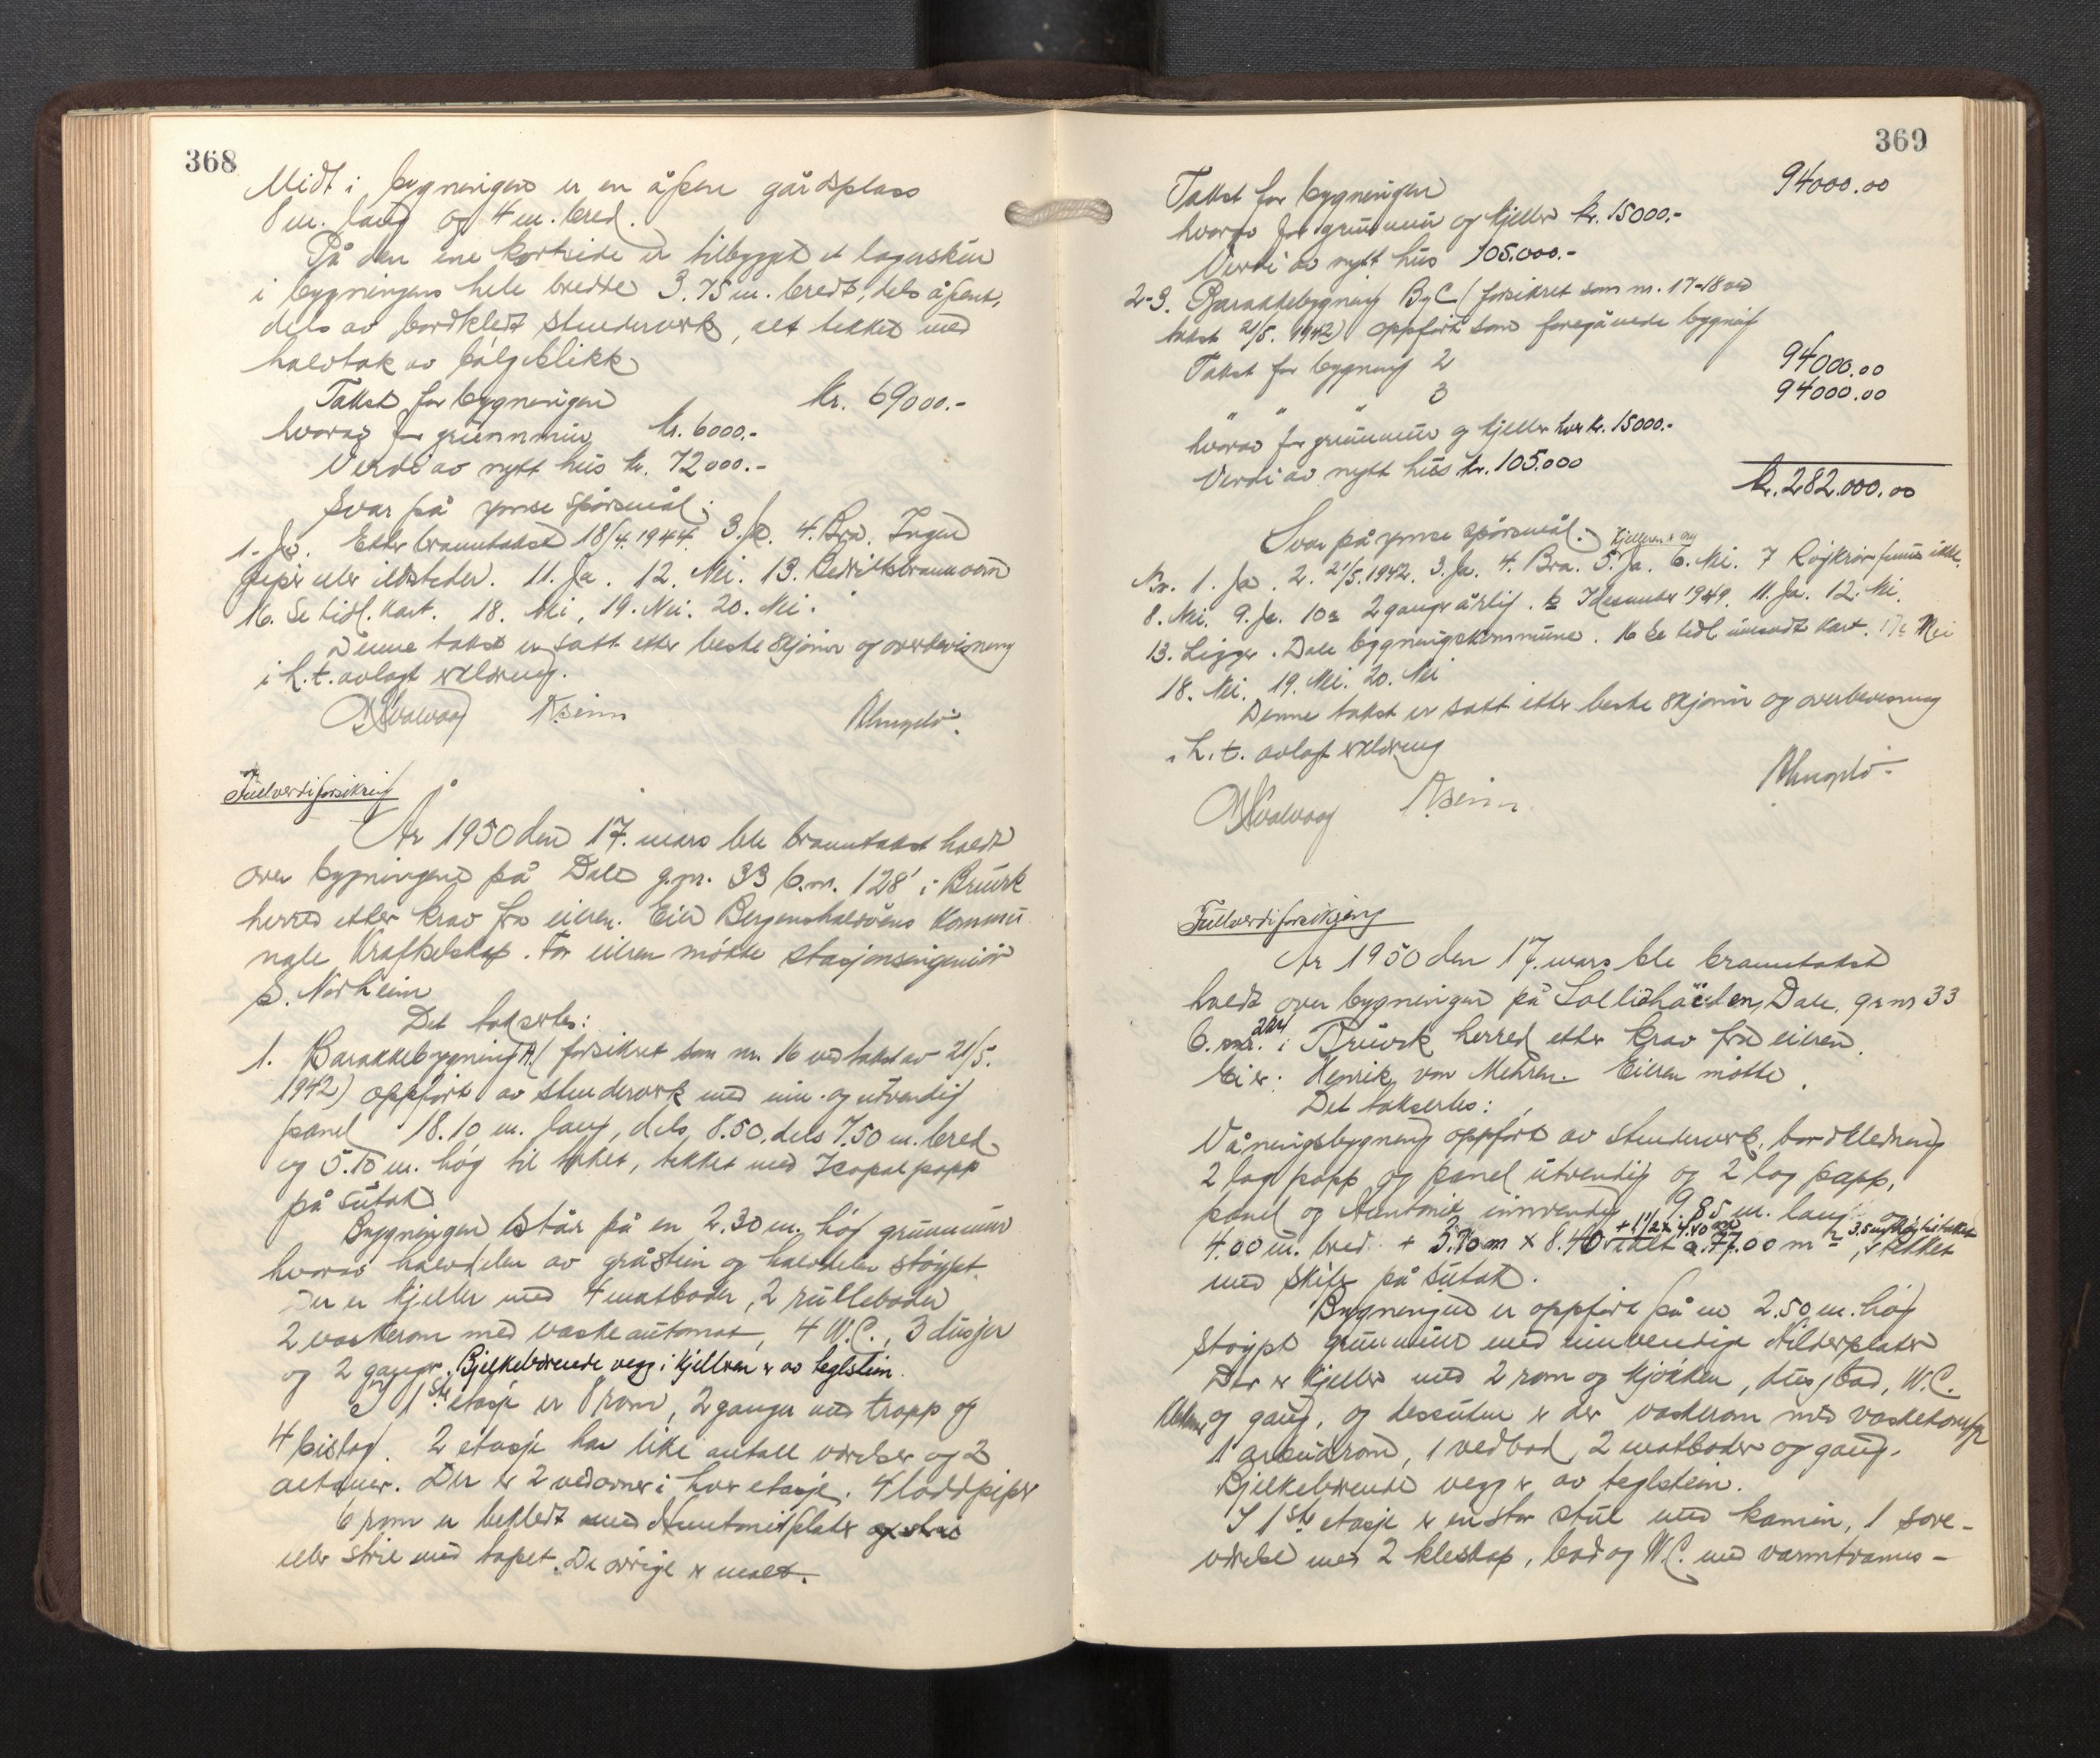 368
Midt i bygningen er en åpen gårdsplass
8 m. lang og 4 m. bred.
På den ene kortside er tilbygget et lagerskur
i bygningens hele bredde 3.75 m. bredt, dels åpent,
dels av bordkledt stenderverk, alt tekket med
halvtak av bølgeblikk
Takst for bygningen kr. 69000.-
hvorav for grunnmur kr. 6000.-
Verdi av nytt hus kr. 72000.-
Svar på ymse spörsmål:
1. Ja. Etter branntakst 18/4.1944. 3. Ja. 4. Bra. Ingen
piper eller ildsteder. 11. Ja. 12. Nei. 13. Bedriftsbrannvern
16. Se tidl. kart. 18. Nei, 19. Nei. 20. Nei.
Denne takst er satt etter beste skjönn og overbevisning
i h.t. avlagt erklæring.
Fullverdiforsikring
År 1950 den 17. mars ble branntakst holdt
over bygningene på Dale g.nr. 33 b.nr. 128 i Bruvik
herred etter krav fra eieren. Eier Bergenshalvöens Kommu-
nale Kraftselskap. For eieren møtte stasjonsingeniör
P. Norheim
Det taksertes:
1. Barakkebygning A (forsikret som nr. 16 ved takst av 21/5.
1942) oppfört av stenderverk med inn- og utvendig
panel 18.10 m. lang, dels 8.50, dels 7.50 m. bred
og 5.10 m. høg til taket, tekket med Icopalpapp
på sutak
Bygningen står på en 2.30 m. høg grunnmur
hvorav halvdelen av gråstein og halvdelen støypt.
Der er kjeller med 4 matboder, 2 rulleboder
2 vaskerom med vaskeautomat, 4 W.C., 3 dusjer
og 2 ganger. Bjelkebærende vegg i kjelleren er av teglstein.
I 1ste etasje er 8 rom, 2 ganger med trapp og
4 bislag. 2 etasje har like antall værelser og 2
altaner. Der er 2 vedovner i hver etasje. 4 loddpiper
6 rom er bekledt med Huntonitplater og strie
eller strie med tapet. De övrige er malt.
369
Takst for bygningen 94000.00
hvorav for grunnmur og kjeller kr. 15000.-
Verdi av nytt hus 105.000.-
2-3. Barakkebygning B og C (forsikret som nr. 17-18 ved
takst 21/5. 1942) oppfört som foregående bygning
Takst for bygning 2 94000.00
" " " 3 94000.00
hvorav for grunnmur og kjeller hver kr. 15000.-
Verdi av nytt hus kr. 105.000
kr. 282.000.00
Svar på ymse spörsmål.
Nr. 1. Ja. 2. 21/5.1942. 3. Ja. 4. Bra. 5. Ja. 6. Nei. 7 Røykrör finns ikke.
8. Nei. 9. Ja. 10a 2 ganger årlig. b desember 1949. 11. Ja. 12. Nei.
13. Ligger i Dale bygningskommune. 16 Se tidl innsendt kart. Nei
18. Nei. 19. Nei. 20. Nei
Denne takst er satt etter beste skjönn og overbevisning
i h.t. avlagt erklæring
Fullverdiforsikring
År 1950 den 17. mars ble branntakst
holdt over bygningen på Dale, grnr 33
b.nr. i Bruvik herred etter krav fra eieren.
Eier: Henrik von Mehren. Eieren møtte.
Det taksertes:
Våningsbygning oppfört av stenderverk, bordkledning
2 lag papp og panel utvendig og 2 lag papp,
panel og Huntonit innvendig 9.85 m. lang og
4.00 m. bred + 5.70 m x 8.40 77.00 m², tekket
med skifer på sutak.
Bygningen er oppfört på en 2.50 m. høg
støypt grunnmur med innvendige plater
Der er kjeller med 2 rom og kjökken, dusjbad, W.C.
og gang, og dessuten er der vaskerom med
1 rom, 1 vedbod, 2 matboder og gang.
Bjelkebærende vegg er av teglstein.
I 1ste etasje er en stor stue med kamin, 1 sove-
værelse med 2 kleskap, bad og W.C. med varmtvanns-